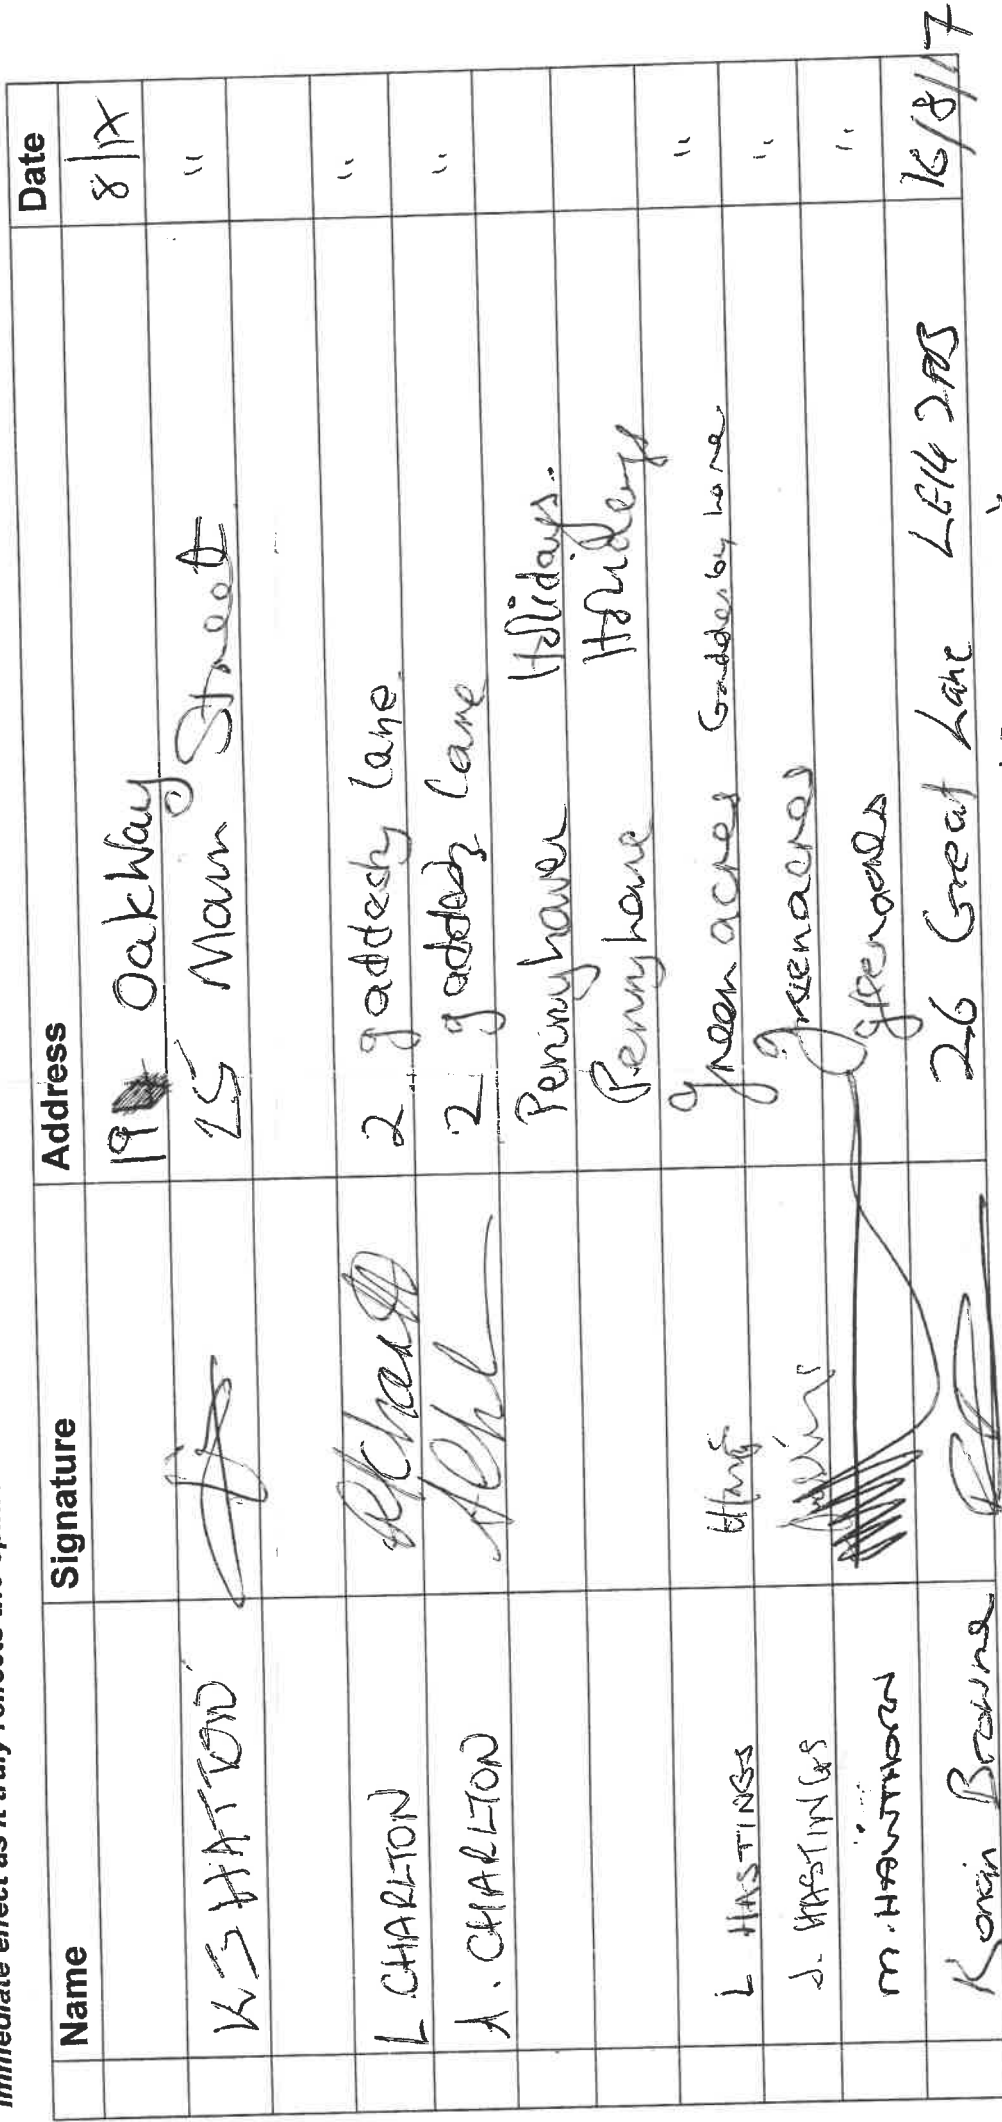 immediate effect as it truly reflects the
Name Signature Address Date
19 OakWay 8/17
K S HATTON 25 Main Street "
L CHARLTON 2 gaddesby lane "
A. CHARLTON 2 gaddesby lane "
Pennyhaven Holidays.
Pennyhave Holidays
L HASTINGS green acres Gaddesby Lane "
J. HASTINGS greenacres "
M. HAWTHORN greenacres "
Browne 26 Great Lane LE14 2PB 16/8/17